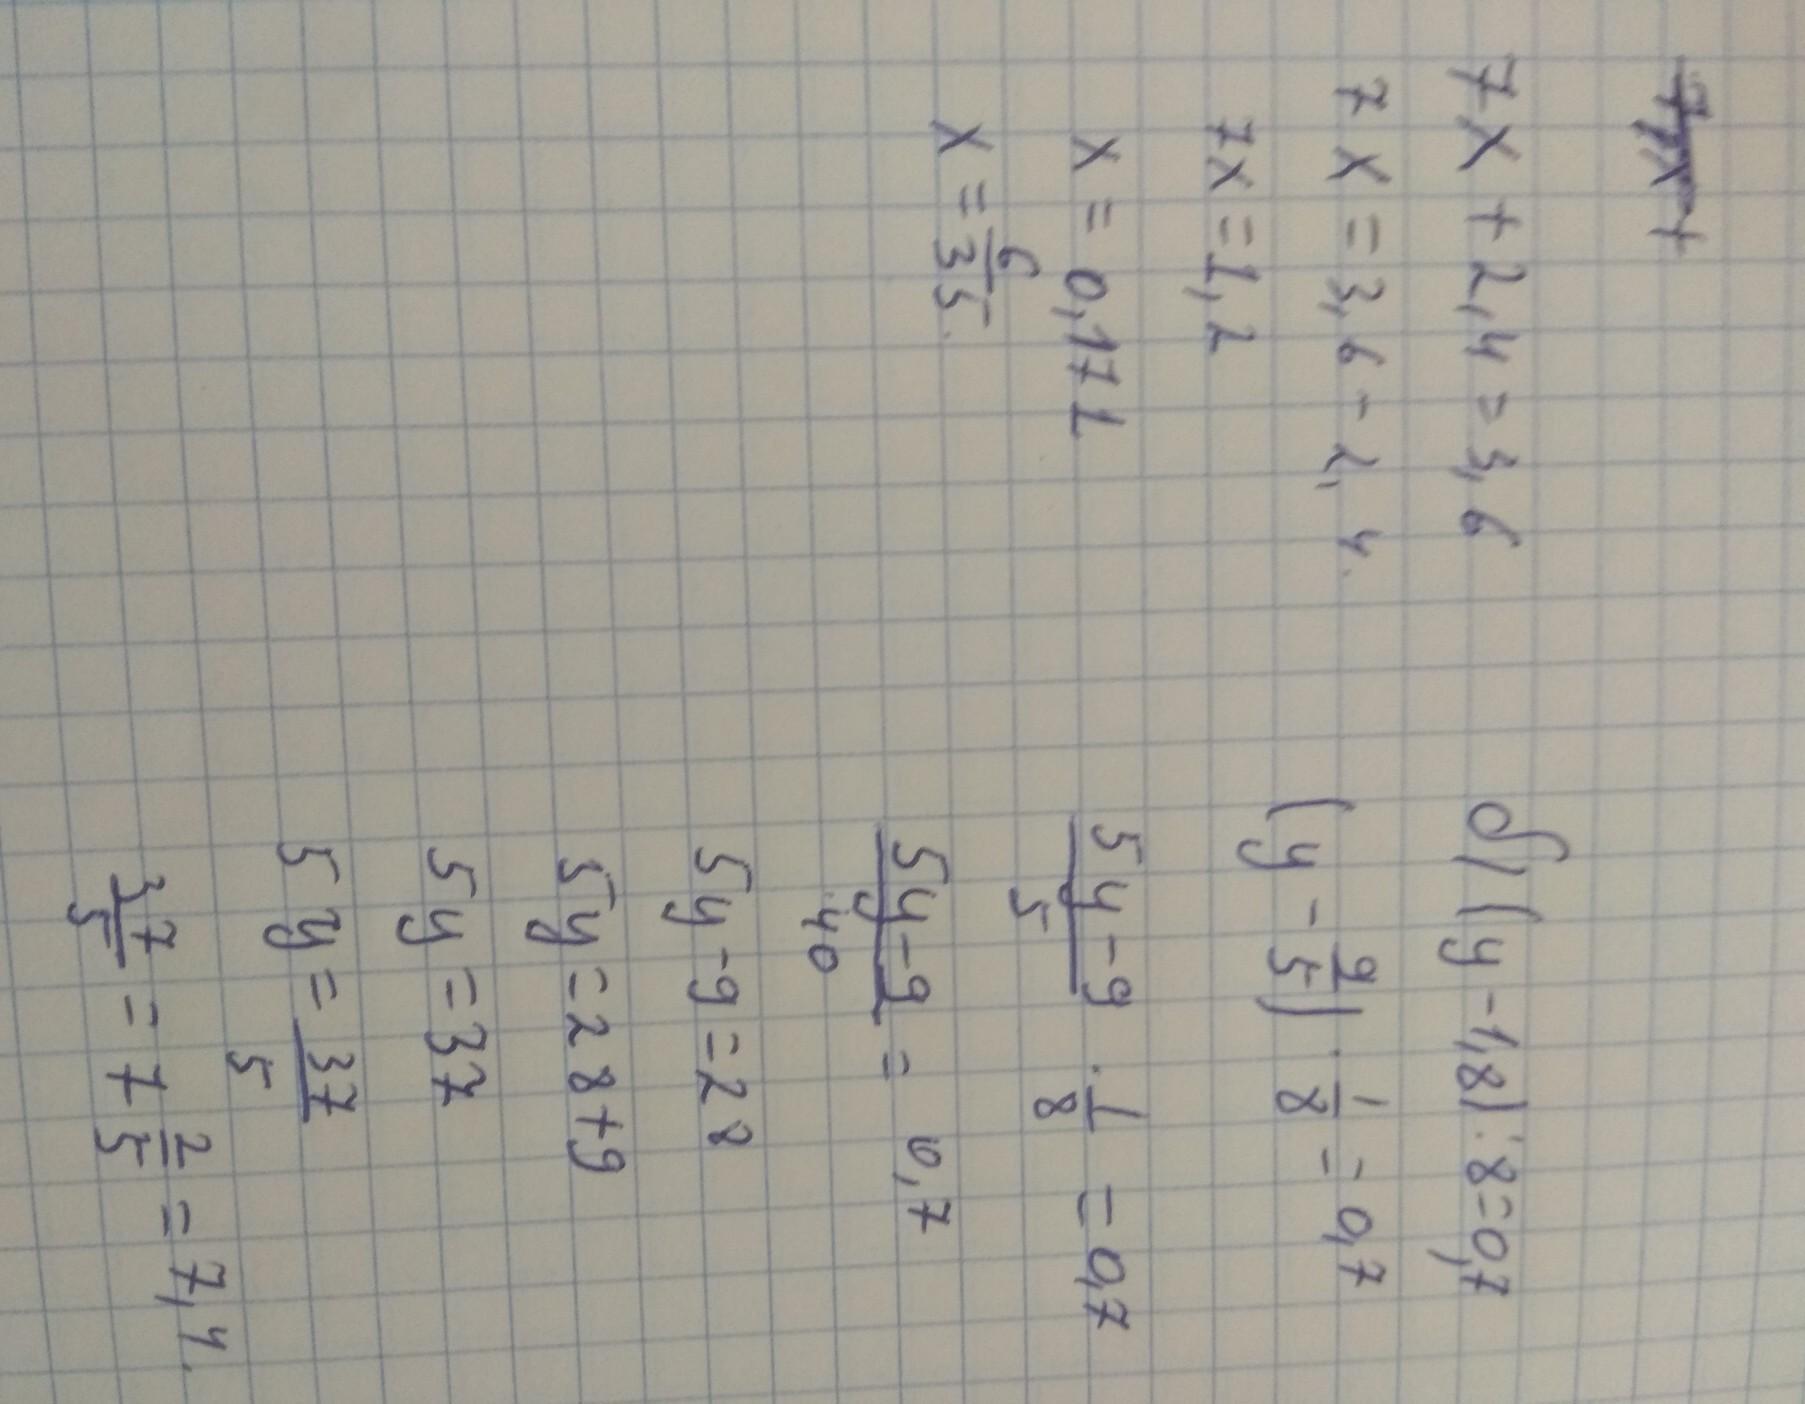 7x + 2,4 = 3,6
7x = 3,6 - 2,4.
7x = 1,2
x = 0,171
x = 6/35.
б) (y - 1,8) : 8 = 0,7
(y - 9/5) · 1/8 = 0,7
5y-9/5 · 1/8 = 0,7
5y-9/40 = 0,7
5y - 9 = 28
5y = 28 + 9
5y = 37
5y = 37/5
37/5 = 7 2/5 = 7,4.